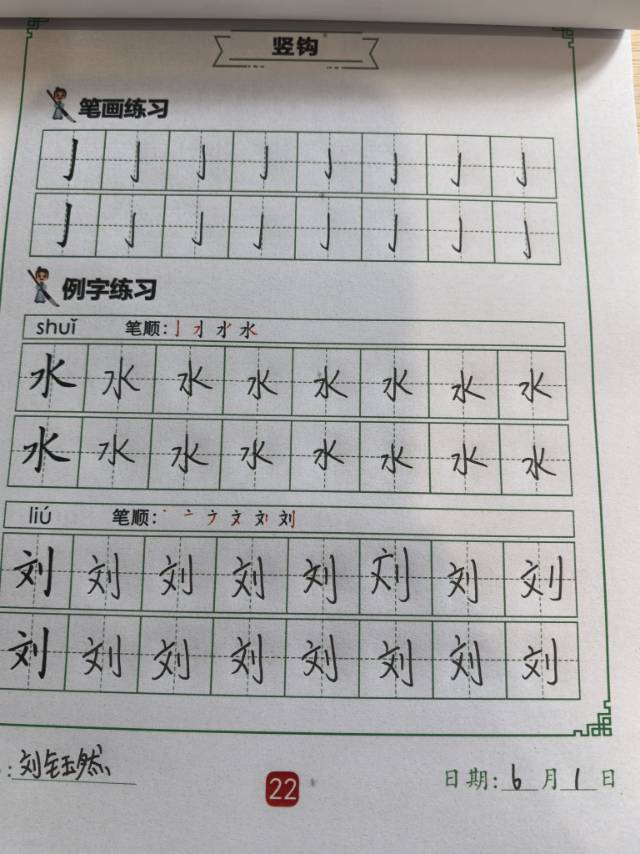 竖钩
笔画练习
亅亅亅亅亅亅亅亅
亅亅亅亅亅亅亅亅
例字练习
shuǐ 笔顺: 水
水水水水水水水水
水水水水水水水水
liú 笔顺: 丶亠ナ文刘刘
刘刘刘刘刘刘刘刘
刘刘刘刘刘刘刘刘
:刘钰然
22
日期:6月1日